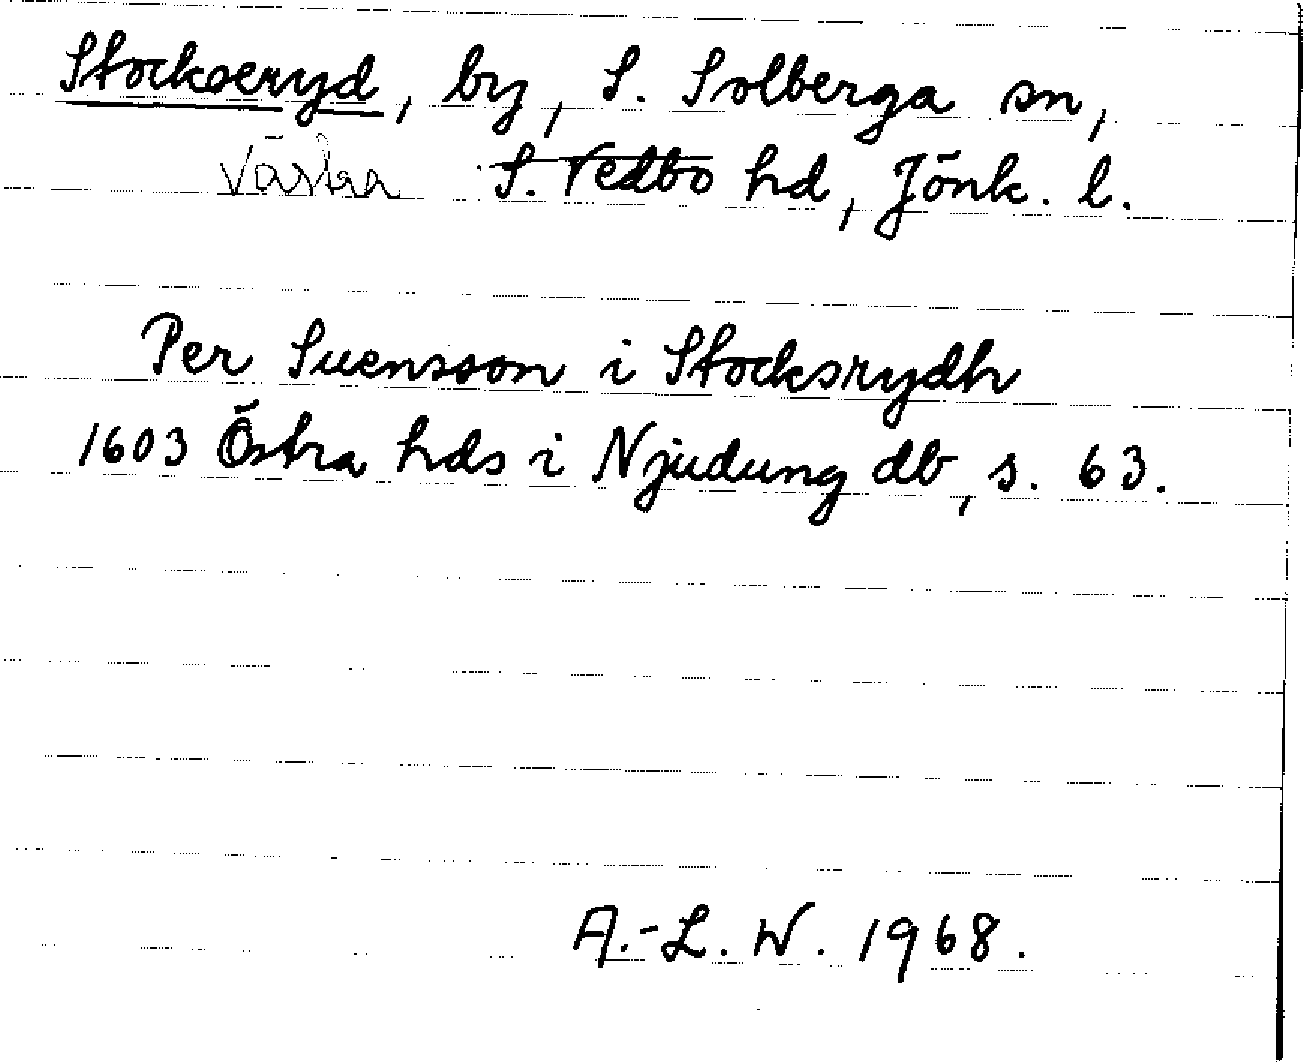 Stockseryd, by, S. Solberga sn,
Västra S. Vedbo hd, Jönk. l.
Per Suensson i Stocksrydh
1603 Östra hds i Njudung db, s. 63.
A.-L. W. 1968.